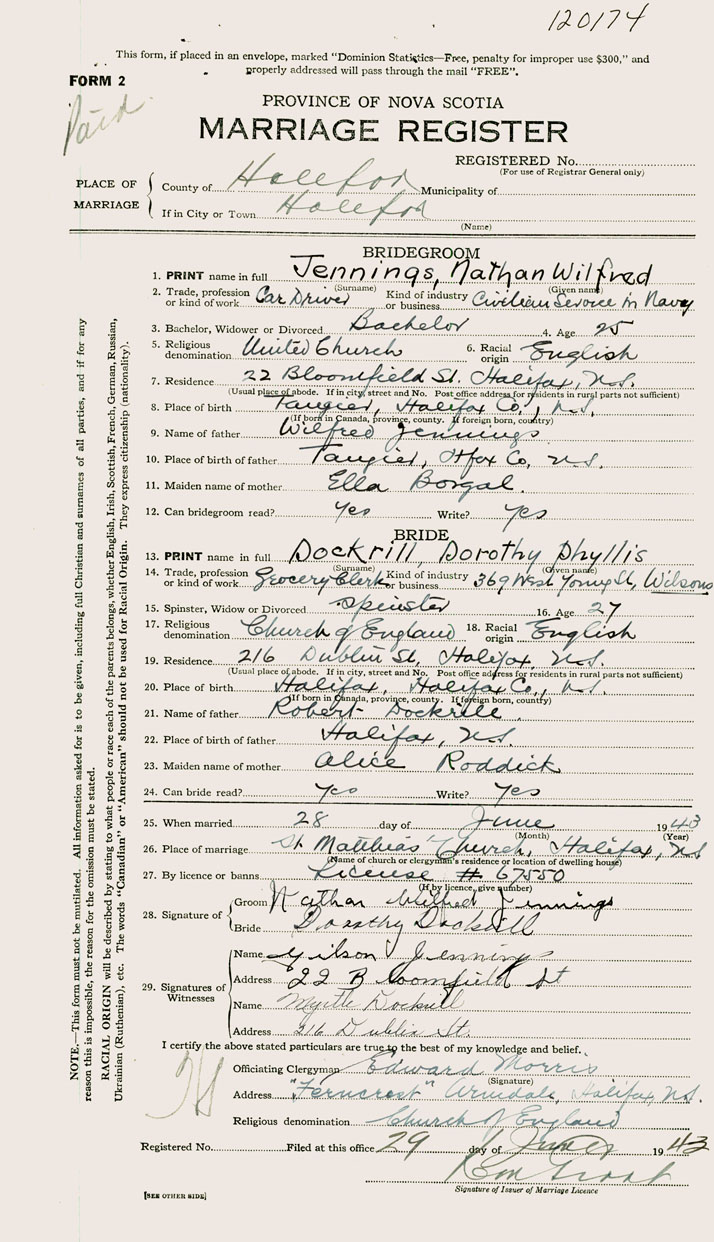 120174
This form, if placed in an envelope, marked "Dominion Statistics—Free, penalty for improper use $300," and
properly addressed will pass through the mail "FREE".
FORM 2
Paid
PROVINCE OF NOVA SCOTIA
MARRIAGE REGISTER
REGISTERED No.
(For use of Registrar General only)
PLACE OF MARRIAGE
County of Halifax Municipality of
If in City or Town Halifax
(Name)
BRIDEGROOM
1. PRINT name in full Jennings, Nathan Wilfred
(Surname) (Given name)
2. Trade, profession or kind of work Car Driver Kind of industry or business Civilian Service in Navy
3. Bachelor, Widower or Divorced Bachelor 4. Age 25
5. Religious denomination United Church 6. Racial origin English
7. Residence 22 Bloomfield St. Halifax, N.S.
(Usual place of abode. If in city, street and No. Post office address for residents in rural parts not sufficient)
8. Place of birth Tangier, Halifax Co., N.S.
(If born in Canada, province, county. If foreign born, country)
9. Name of father Wilfred Jennings
10. Place of birth of father Tangier, Hfax Co, N.S.
11. Maiden name of mother Ella Borgal.
12. Can bridegroom read? Yes Write? Yes
BRIDE
13. PRINT name in full Dockrill, Dorothy Phyllis
(Surname) (Given name)
14. Trade, profession or kind of work Grocery Clerk Kind of industry or business 369 West Young St, Wilsons
15. Spinster, Widow or Divorced Spinster 16. Age 27
17. Religious denomination Church of England 18. Racial origin English
19. Residence 216 Dublin St, Halifax, N.S.
(Usual place of abode. If in city, street and No. Post office address for residents in rural parts not sufficient)
20. Place of birth Halifax, Halifax Co., N.S.
(If born in Canada, province, county. If foreign born, country)
21. Name of father Robert Dockrill
22. Place of birth of father Halifax, N.S.
23. Maiden name of mother Alice Roddick
24. Can bride read? Yes Write? Yes
25. When married 28 day of June 1943
(Month) (Year)
26. Place of marriage St. Matthias' Church, Halifax, N.S
(Name of church or clergyman's residence or location of dwelling house)
27. By licence or banns License # 67550
(If by licence, give number)
28. Signature of
Groom Nathan Wilfred Jennings
Bride Dorothy Dockrill
29. Signatures of Witnesses
Name Gilson Jennings
Address 22 Bloomfield St
Name Myrtle Dockrill
Address 216 Dublin St.
I certify the above stated particulars are true to the best of my knowledge and belief.
Officiating Clergyman Edward Morris
(Signature)
Address "Ferncrest" Armdale, Halifax, N.S.
Religious denomination Church of England
Registered No. Filed at this office 29 day of June 1943
Signature of Issuer of Marriage Licence
[SEE OTHER SIDE]
NOTE.—This form must not be mutilated. All information asked for is to be given, including full Christian and surnames of all parties, and if for any
reason this is impossible, the reason for the omission must be stated.
RACIAL ORIGIN will be described by stating to what people or race each of the parents belongs, whether English, Irish, Scottish, French, German, Russian,
Ukrainian (Ruthenian), etc. The words "Canadian" or "American" should not be used for Racial Origin. They express citizenship (nationality).